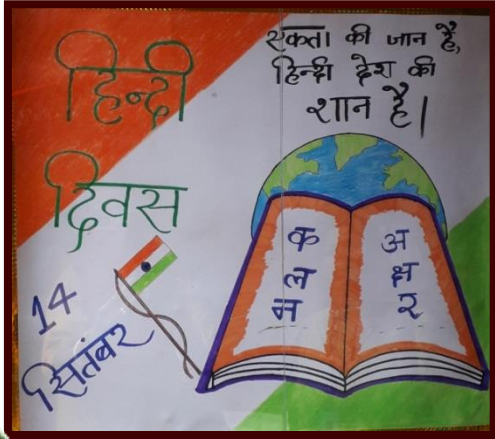 हिन्दी
दिवस
14
सितंबर
एकता की जान है,
हिन्दी देश की
शान है।
क
ल
म
अ
क्ष
र